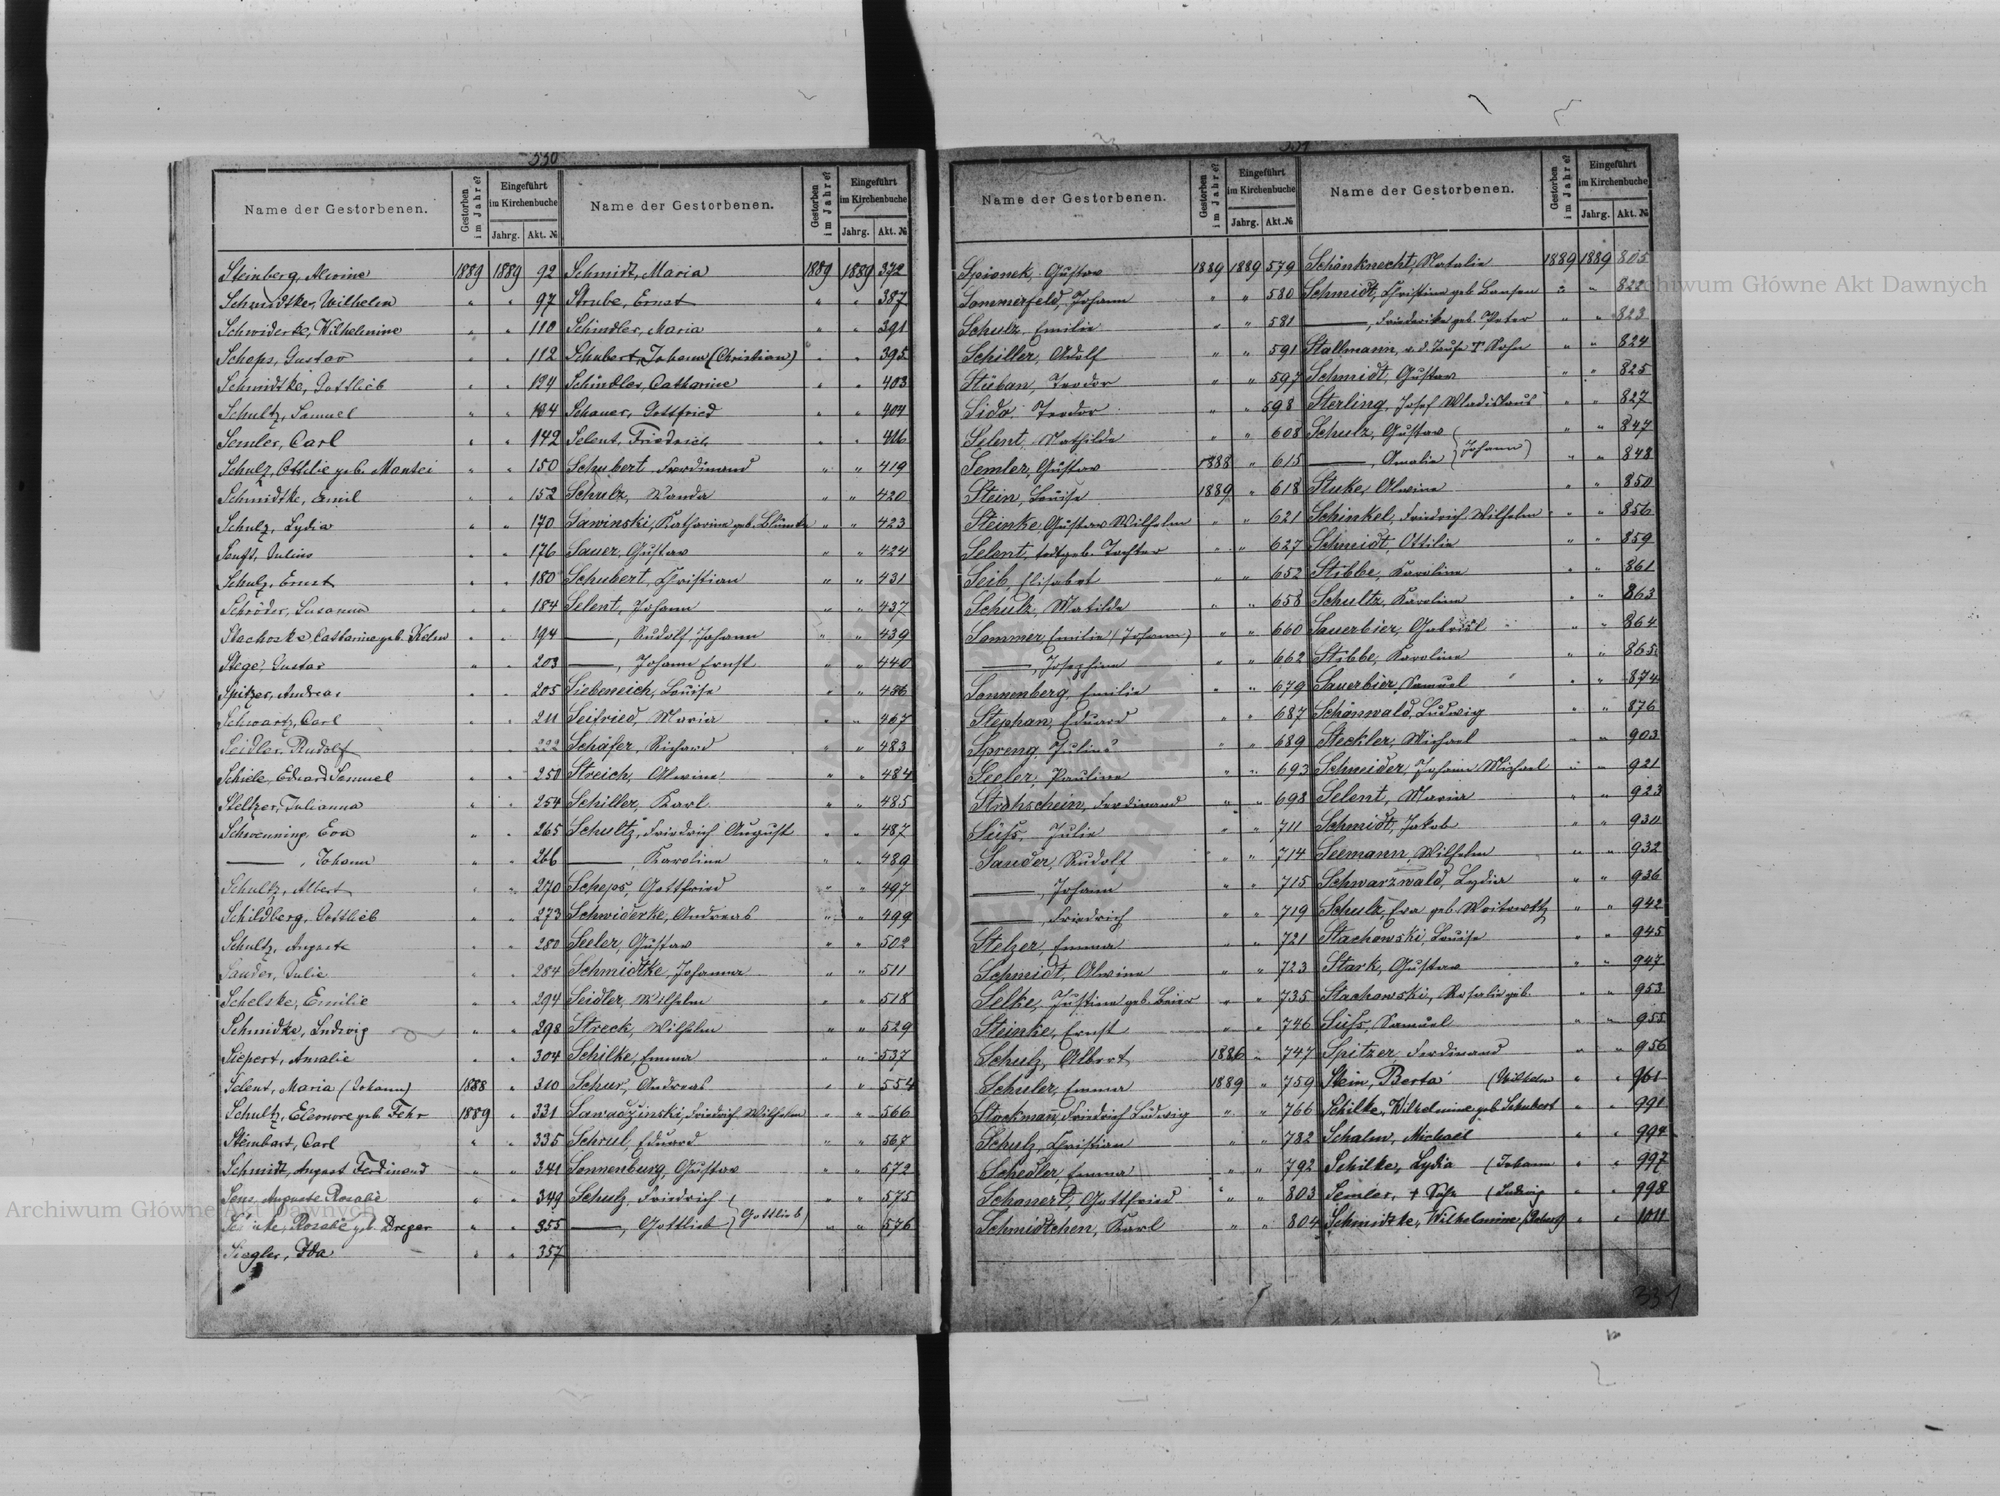 330
Name der Gestorbenen. Gestorben im Jahre? Eingeführt im Kirchenbuche Jahrg. Akt. №
Steinberg, Alwine 1889 1889 92
Schmidtke, Wilhelm " " 97
Schwiderke, Wilhelmine " " 110
Scheps, Gustav " " 112
Schmidtke, Gottlieb " " 124
Schultz, Samuel " " 134
Semler, Carl " " 142
Schulz, Ottilie geb. Mantei " " 150
Schmidtke, Emil " " 152
Schulz, Lydia " " 170
Senft, Julius " " 176
Schulz, Ernst " " 180
Schröder, Susanna " " 184
Stachoske Catharine geb. Kelm " " 194
Stege, Gustav " " 203
Spitzer, Andreas " " 205
Schwartz, Carl " " 211
Seidler, Rudolf " " 222
Schiele, Eduard Samuel " " 250
Steltzer, Julianna " " 254
Schwenning, Eva " " 265
——, Johann " " 266
Schultz, Albert " " 270
Schildberg, Gottlieb " " 273
Schultz, Auguste " " 280
Sander, Julie " " 284
Schelske, Emilie " " 294
Schmidke, Ludwig " " 298
Siepert, Amalie " " 304
Selent, Maria (Johann) 1888 " 310
Schultz, Eleonore geb. Fehr 1889 " 331
Steinbart, Carl " " 335
Schmidt, August Ferdinand " " 341
Auguste Rosalie " " 349
Rosalie geb. Dreger " " 355
Siegler, Ida " " 357
Name der Gestorbenen. Gestorben im Jahre? Eingeführt im Kirchenbuche Jahrg. Akt. №
Schmidt, Maria 1889 1889 372
Strube, Ernst " " 387
Schindler, Maria " " 391
Schubert, Johann (Christian) " " 395
Schindler, Catharine " " 403
Schauer, Gottfried " " 404
Selent, Friedrich " " 416
Schubert Ferdinand " " 419
Schulz, Wanda " " 420
Sawinski, Katharina geb. " " 423
Sauer, Gustav " " 424
Schubert, Christian " " 431
Selent, Johann " " 437
——, Rudolf Johann " " 439
——, Johann Ernst " " 440
Siebeneich, Louise " " 456
Seifried, Maria " " 467
Schäfer, Richard " " 483
Streich, Alwine " " 484
Schiller, Karl " " 485
Schultz, Friedrich August " " 487
—— Karoline " " 489
Scheps, Gottfried " " 497
Schwiderke, Andreas " " 499
Seeler, Gustav " " 502
Schmidtke, Johanna " " 511
Seidler, Wilhelm " " 518
Streck, Wilhelm " " 529
Schilke, Emma " " 537
Schur, Andreas " " 554
Sawadzinski, Friedrich Wilhelm " " 566
Schrul, Eduard " " 567
Sonnenburg, Gustav " " 572
Schulz, Friedrich " " 575
——, Gottlieb (Gottlieb) " " 576
331
Name der Gestorbenen. Gestorben im Jahre? Eingeführt im Kirchenbuche Jahrg. Akt. №
Spionek, Gustav 1889 1889 579
Sommerfeld, Johann " " 580
Schulz, Emilie " " 581
Schiller, Adolf " " 591
Stüban, Teodor " " 597
Sido, Teodor " " 598
Selent, Mathilde " " 608
Semler, Gustav 1888 " 615
Stein, Louise 1889 " 618
Steinke Gustav Wilhelm " " 621
Selent, todtgeb. Tochter " " 627
Seib, Elisabet " " 652
Schulz, Matilde " " 658
Sommer, Emilie (Johann) " " 660
——, Josephine " " 662
Sonnenberg, Emilie " " 679
Stephan, Eduard " " 687
Spreng, Julius " " 689
Seeler, Pauline " " 693
Strohschein, Ferdinand " " 698
Süss, Julie " " 711
Sauder, Rudolf " " 714
——, Johann " " 715
——, Friedrich " " 719
Stelzer, Emma " " 721
Schmidt, Alwine " " 723
Selke, Justine geb. Beier " " 735
Steinke, Ernst " " 746
Schulz, Albert 1886 " 747
Schuler, Emma 1889 " 759
Stockmann, Friedrich Ludwig " " 766
Schulz, Christian " " 782
Schedler, Emma " " 792
Schanert, Gottfried " " 803
Schmidtchen, Karl " " 804
Name der Gestorbenen. Gestorben im Jahre? Eingeführt im Kirchenbuche Jahrg. Akt. №
Schönknecht, Natalie 1889 1889 805
Schmidt, Christine geb. Bansen " " 822
——, Friederike geb. Peter " " 823
Stallmann, v. d. Taufe † Sohn " " 824
Schmidt, Gustav " " 825
Sterling, Josef Wladislaus " " 827
Schulz, Gustav " " 847
——, Amalie (Johann) " " 848
Stuke, Alwine " " 850
Schinkel, Friedrich Wilhelm " " 856
Schmidt, Ottilie " " 859
Stibbe, Karoline " " 861
Schultz, Karoline " " 863
Sauerbier, Gabriel " " 864
Stibbe, Karoline " " 865
Sauerbier, Samuel " " 874
Schönwald, Ludwig " " 876
Steckler, Michael " " 903
Schneider, Johann Michael " " 921
Selent, Maria " " 923
Schmidt, Jakob " " 930
Seemann, Wilhelm " " 932
Schwarzwald, Lydia " " 936
Schulz, Eva geb. " " 942
Stachowski, Louise " " 945
Stark, Gustav " " 947
Stachowski, Rosalie geb. " " 953
Süss, Samuel " " 955
Spitzer, Ferdinand " " 956
Stein, Berta (Wilhelm " " 961
Schilke, Wilhelmine geb Schubert " " 991
Schalm, Michael " " 994
Schilke, Lydia (Johann " " 997
Semler, † Sohn (Ludwig " " 998
Schmidtke, Wilhelmine " " 1011
331
Archiwum Główne Akt Dawnych
Archiwum Główne Akt Dawnych